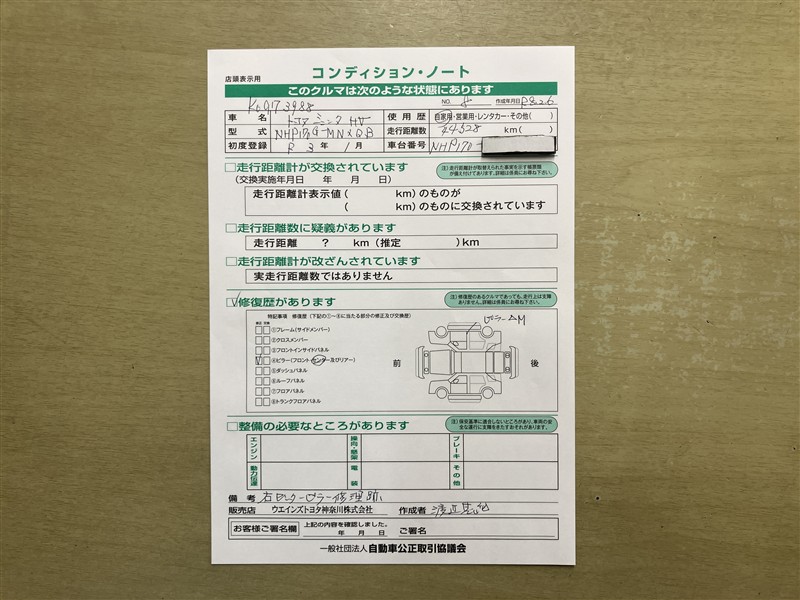 店頭表示用
コンディション・ノート
このクルマは次のような状態にあります
K0Q173988 NO. 8 作成年月日 R8.2.6
車名 トヨタ シエンタ HV 使用歴 自家用・営業用・レンタカー・その他( )
型式 NHP170G-MNXQB 走行距離数 44528 km( )
初度登録 R 3年 1月 車台番号 NHP170-
□走行距離計が交換されています
(交換実施年月日 年 月 日)
注)走行距離計が取替えられた事実を示す帳票類が備え付けてあります。詳細は係員にお尋ね下さい。
走行距離計表示値( km)のものが
( km)のものに交換されています
□走行距離数に疑義があります
走行距離 ? km(推定 )km
□走行距離計が改ざんされています
実走行距離数ではありません
□修復歴があります
注)修復歴のあるクルマであっても、走行上は支障ありません。詳細は係員にお尋ね下さい。
特記事項 修復歴(下記の①~⑧に当たる部分の修正及び交換歴)
修正 交換
①フレーム(サイドメンバー)
②クロスメンバー
③フロントインサイドパネル
④ピラー(フロント・センター及びリアー)
⑤ダッシュパネル
⑥ルーフパネル
⑦フロアパネル
⑧トランクフロアパネル
ピラー△M
前 後
□整備の必要なところがあります
注)保安基準に適合しないところがあり、車両の安全な運行に支障をきたすおそれがあります。
エンジン 操向・懸架 ブレーキ
動力伝達 電装 その他
備考 右センターピラー修理跡
販売店 ウエインズトヨタ神奈川株式会社 作成者
お客様ご署名欄 上記の内容を確認しました。
年 月 日 ご署名
一般社団法人 自動車公正取引協議会